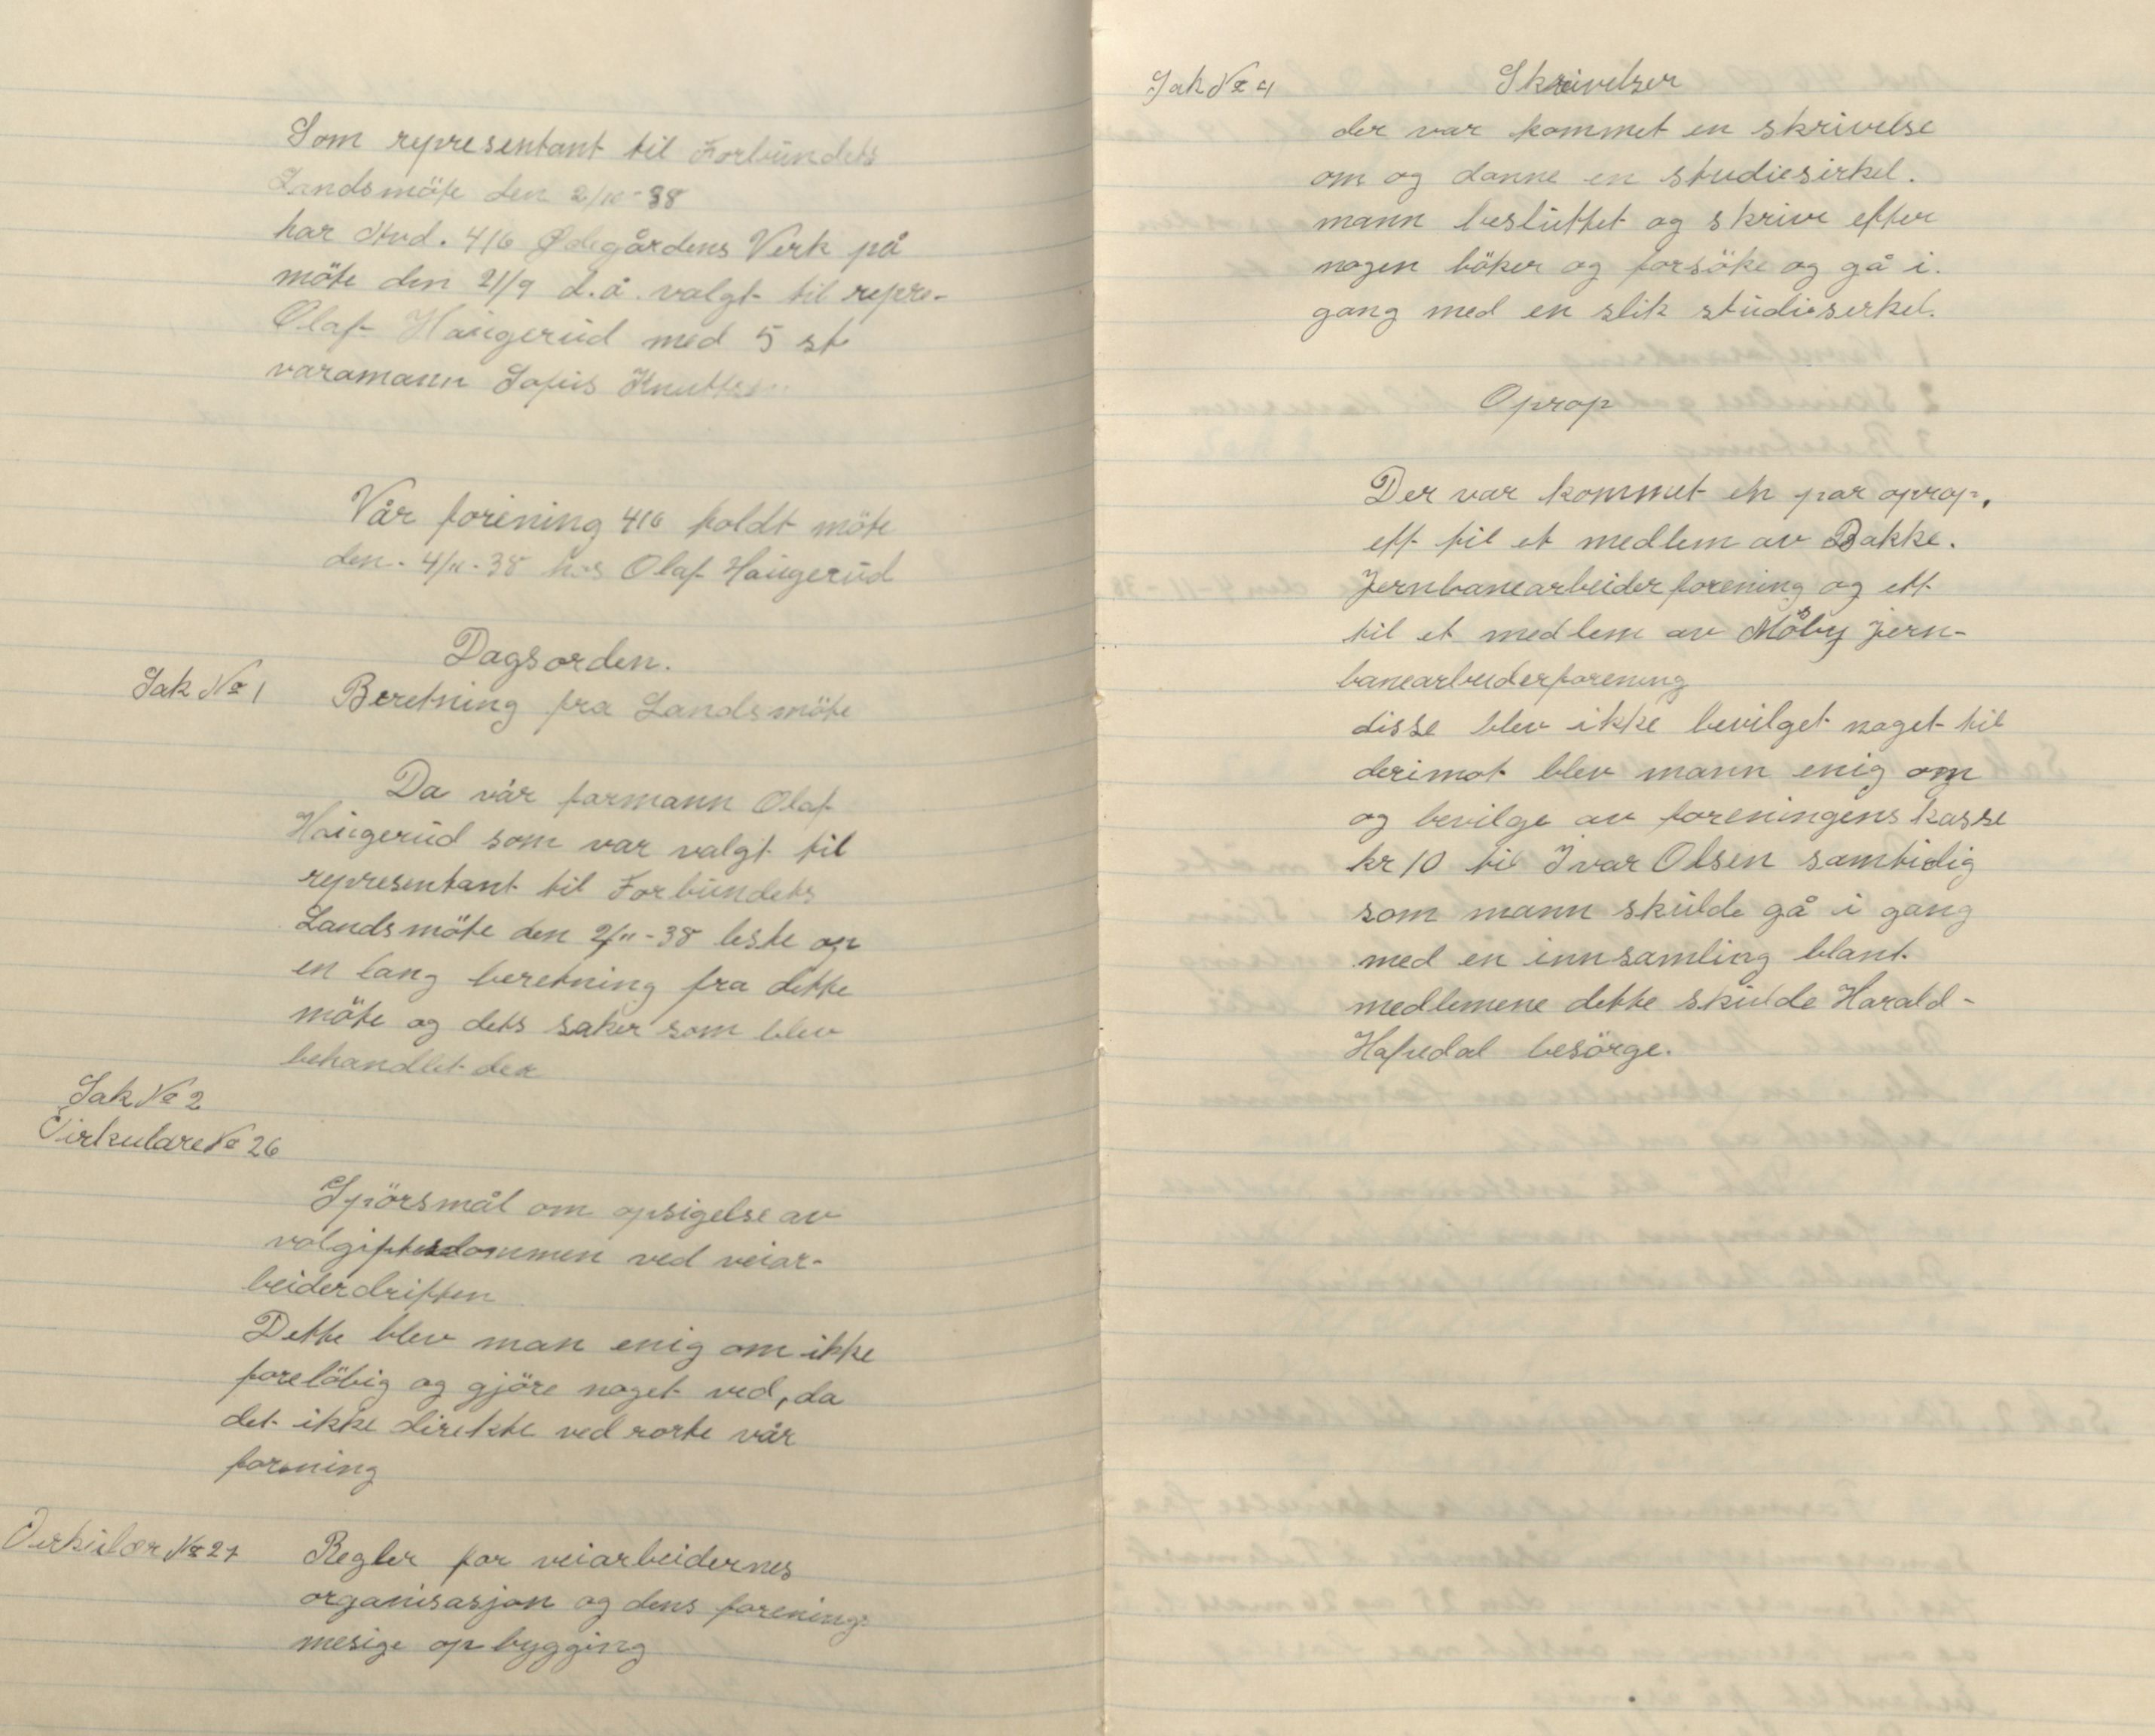 Som representant til Forbundets
Landsmöte den 2/10-38
har Avd. 416 Ødegårdens Verk på
möte den 21/9 d.å. valgt til repre-
Olaf Haugerud med 5 st
varamann Sofus Knutsen
Vår forening 416 holdt möte
den. 4/11-38 hos Olaf Haugerud
Dagsorden.
Sak No 1 Beretning fra Landsmöte
Da vår formann Olaf
Haugerud som var valgt til
representant til Forbundets
Landsmöte den 2/11-38 leste op
en lang beretning fra dette
möte og dets saker som blev
behandlet der
Sak No 2
Cirkulare No 26
Spörsmål om opsigelse av
volgiftsdommen ved veiar-
beiderdriften
Dette blev man enig om ikke
forelöbig og gjöre noget ved, da
det ikke direkte ved rorte vår
forening
Cirkulær No 27 Regler for veiarbeidernes
organisasjon og dens forening-
mesige op bygging
Sak No 4 Skrivelser
der var kommet en skrivelse
om og danne en studiesirkel.
mann besluttet og skrive efter
nogen böker og forsöke og gå i.
gang med en slik studieserkel.
Oprop
Der var kommet en par oprop,
ett til et medlem av Bakke.
Jernbanearbeiderforening og ett
til et medlem av Måby jern-
banearbeiderforening
disse blev ikke bevilget noget til
derimot blev mann enig om
og bevilge av foreningens kasse
kr 10 til Ivar Olsen samtidig
som mann skulde gå i gang
med en innsamling blant
medlemene dette skulde Harald-
Hafredal besörge.